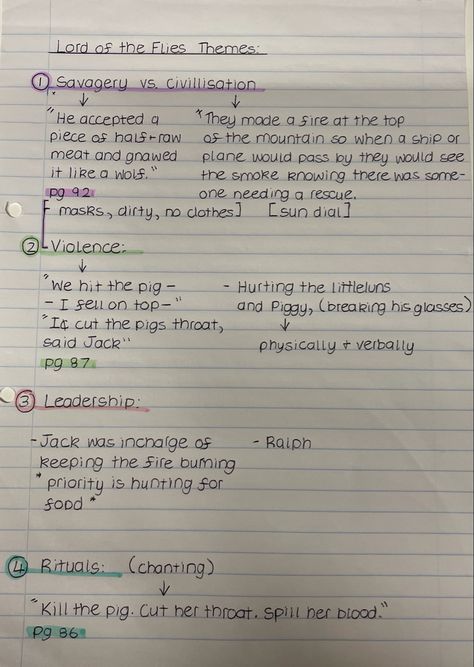 Lord of the Flies Themes:
① Savagery vs. Civillisation
"He accepted a
piece of half-raw
meat and gnawed
it like a wolf."
pg 92
* They made a fire at the top
of the mountain so when a ship or
plane would pass by they would see
the smoke knowing there was some-
one needing a rescue.
[masks, dirty, no clothes]
[sun dial]
② Violence:
"We hit the pig -
- I fell on top-"
- Hurting the littleluns
and Piggy, (breaking his glasses)
physically + verbally
cut the pigs throat,
said Jack"
pg 87
③ Leadership:
-Jack was incharge of
keeping the fire burning
* priority is hunting for
food *
- Ralph
④ Rituals: (chanting)
"Kill the pig. Cut her throat. Spill her blood."
pg 86